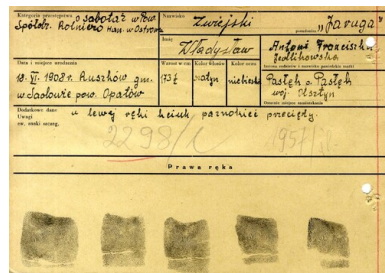 Kategoria przestępstwa o sabotaż w Pow.
Spółdz. Rolniczo Han. w Ostrowc
Nazwisko
Zwiejski
pseudonim "Jaruga"
Imię
Władysław
Antoni Franciszka
Jedlikowska
Data i miejsce urodzenia
18. VI. 1908 r. Ruszków gm.
w Sadowie pow. Opatów
Wzrost w cm.
173
Kolor włosów
szatyn
Kolor oczu
niebieskie
Pasłęk p. Pasłęk
woj. Olsztyn
Dodatkowe dane
Uwagi
zw. znaki szczeg.
u lewej ręki kciuk, paznokieć przecięty.
2298/1
1957
Prawa ręka